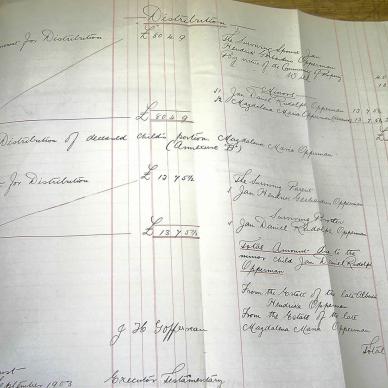 Distribution
for Distribution £ 80 4 9
The Surviving Spouse Jan
Hendrik Oosterhuizen Opperman
by virtue of the Community of Property
Minors
Jan Daniel Rudolph Opperman 13 7 5½
Magdalena Maria Opperman
£ 80 4 9
Distribution of deceased child's portion Magdalena Maria Opperman
(Annexure "B")
for Distribution £ 13 7 5½
The Surviving Parent
Jan Hendrik Opperman
Surviving Brother
Jan Daniel Rudolph Opperman
£ 13 7 5½
Total Amount due to the
minor child Jan Daniel Rudolph
Opperman
From the Estate of the late
Opperman
From the Estate of the late
Magdalena Maria Opperman
Total
J H Opperman
September 1903 Executor Testamentary